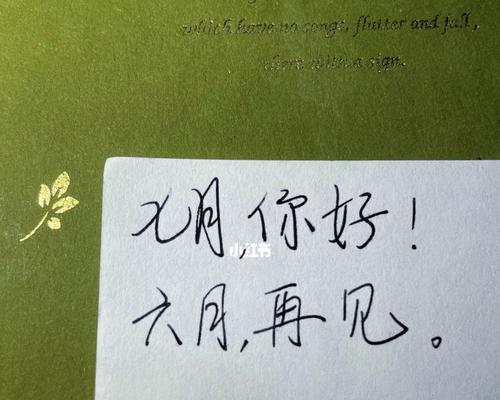 which have no songs, flutter and fall,
there with a sign.
七月,你好！
小红书
六月,再见。